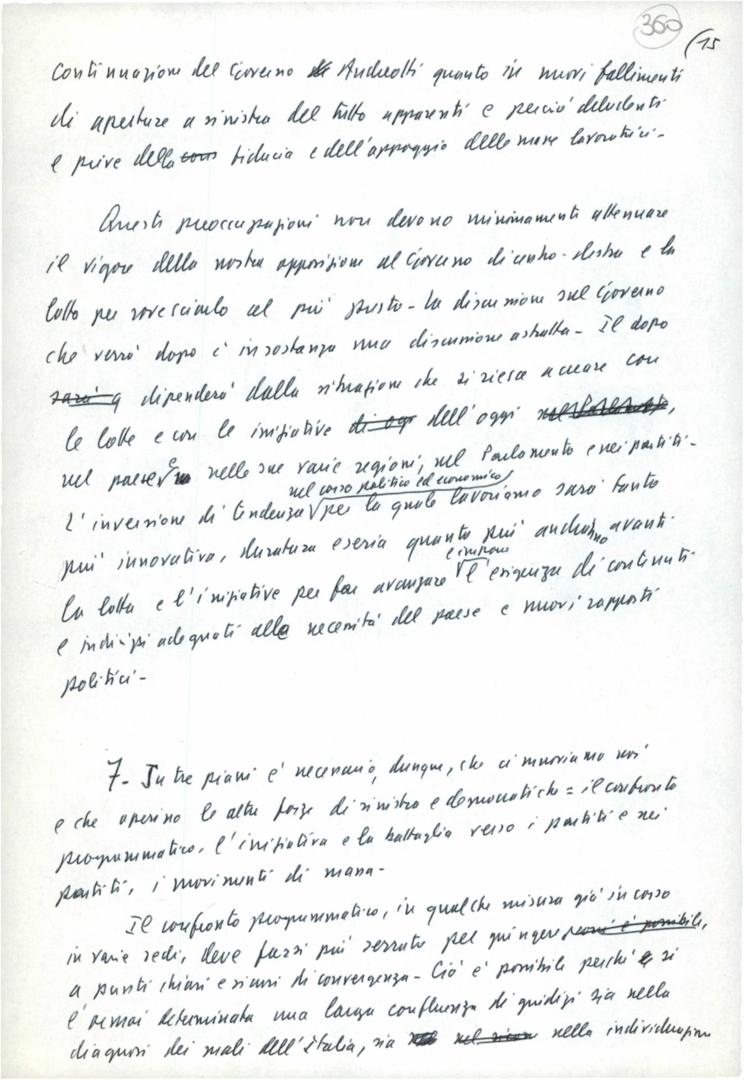 360
(15
continuazione del Governo Andreotti quanto in nuovi fallimenti
di aperture a sinistra del tutto apparenti e perciò deludenti
e prive della fiducia e dell'appoggio delle masse lavoratrici-
Queste preoccupazioni non devono minimamente attenuare
il vigore della nostra opposizione al Governo di centro-destra e la
lotta per rovesciarlo al più presto- La discussione sul Governo
che verrà dopo è in sostanza una discussione astratta- Il dopo
sarà dipenderà dalla situazione che si riesce a creare con
le lotte e con le iniziative di oggi dell'oggi,
nel paese e nelle sue varie regioni, nel Parlamento e nei partiti-
nel corso politico ed economico
L'inversione di tendenza per la quale lavoriamo sarà tanto
più innovativa, duratura e seria quanto più andranno avanti
la lotta e l'iniziative per far avanzare l'esigenza di contenuti
e indirizzi adeguati alle necessità del paese e nuovi rapporti
politici-
7- Su tre piani è necessario, dunque, che ci muoviamo noi
e che operino le altre forze di sinistra e democratiche = il confronto
programmatico, l'iniziativa e la battaglia verso i partiti e nei
partiti, i movimenti di massa-
Il confronto programmatico, in qualche misura già in corso
in varie sedi, deve farsi più serrato per giungere
a punti chiari e sicuri di convergenza- Ciò è possibile perchè si
è ormai determinata una larga confluenza di giudizi sia nella
diagnosi dei mali dell'Italia, sia nella individuazione